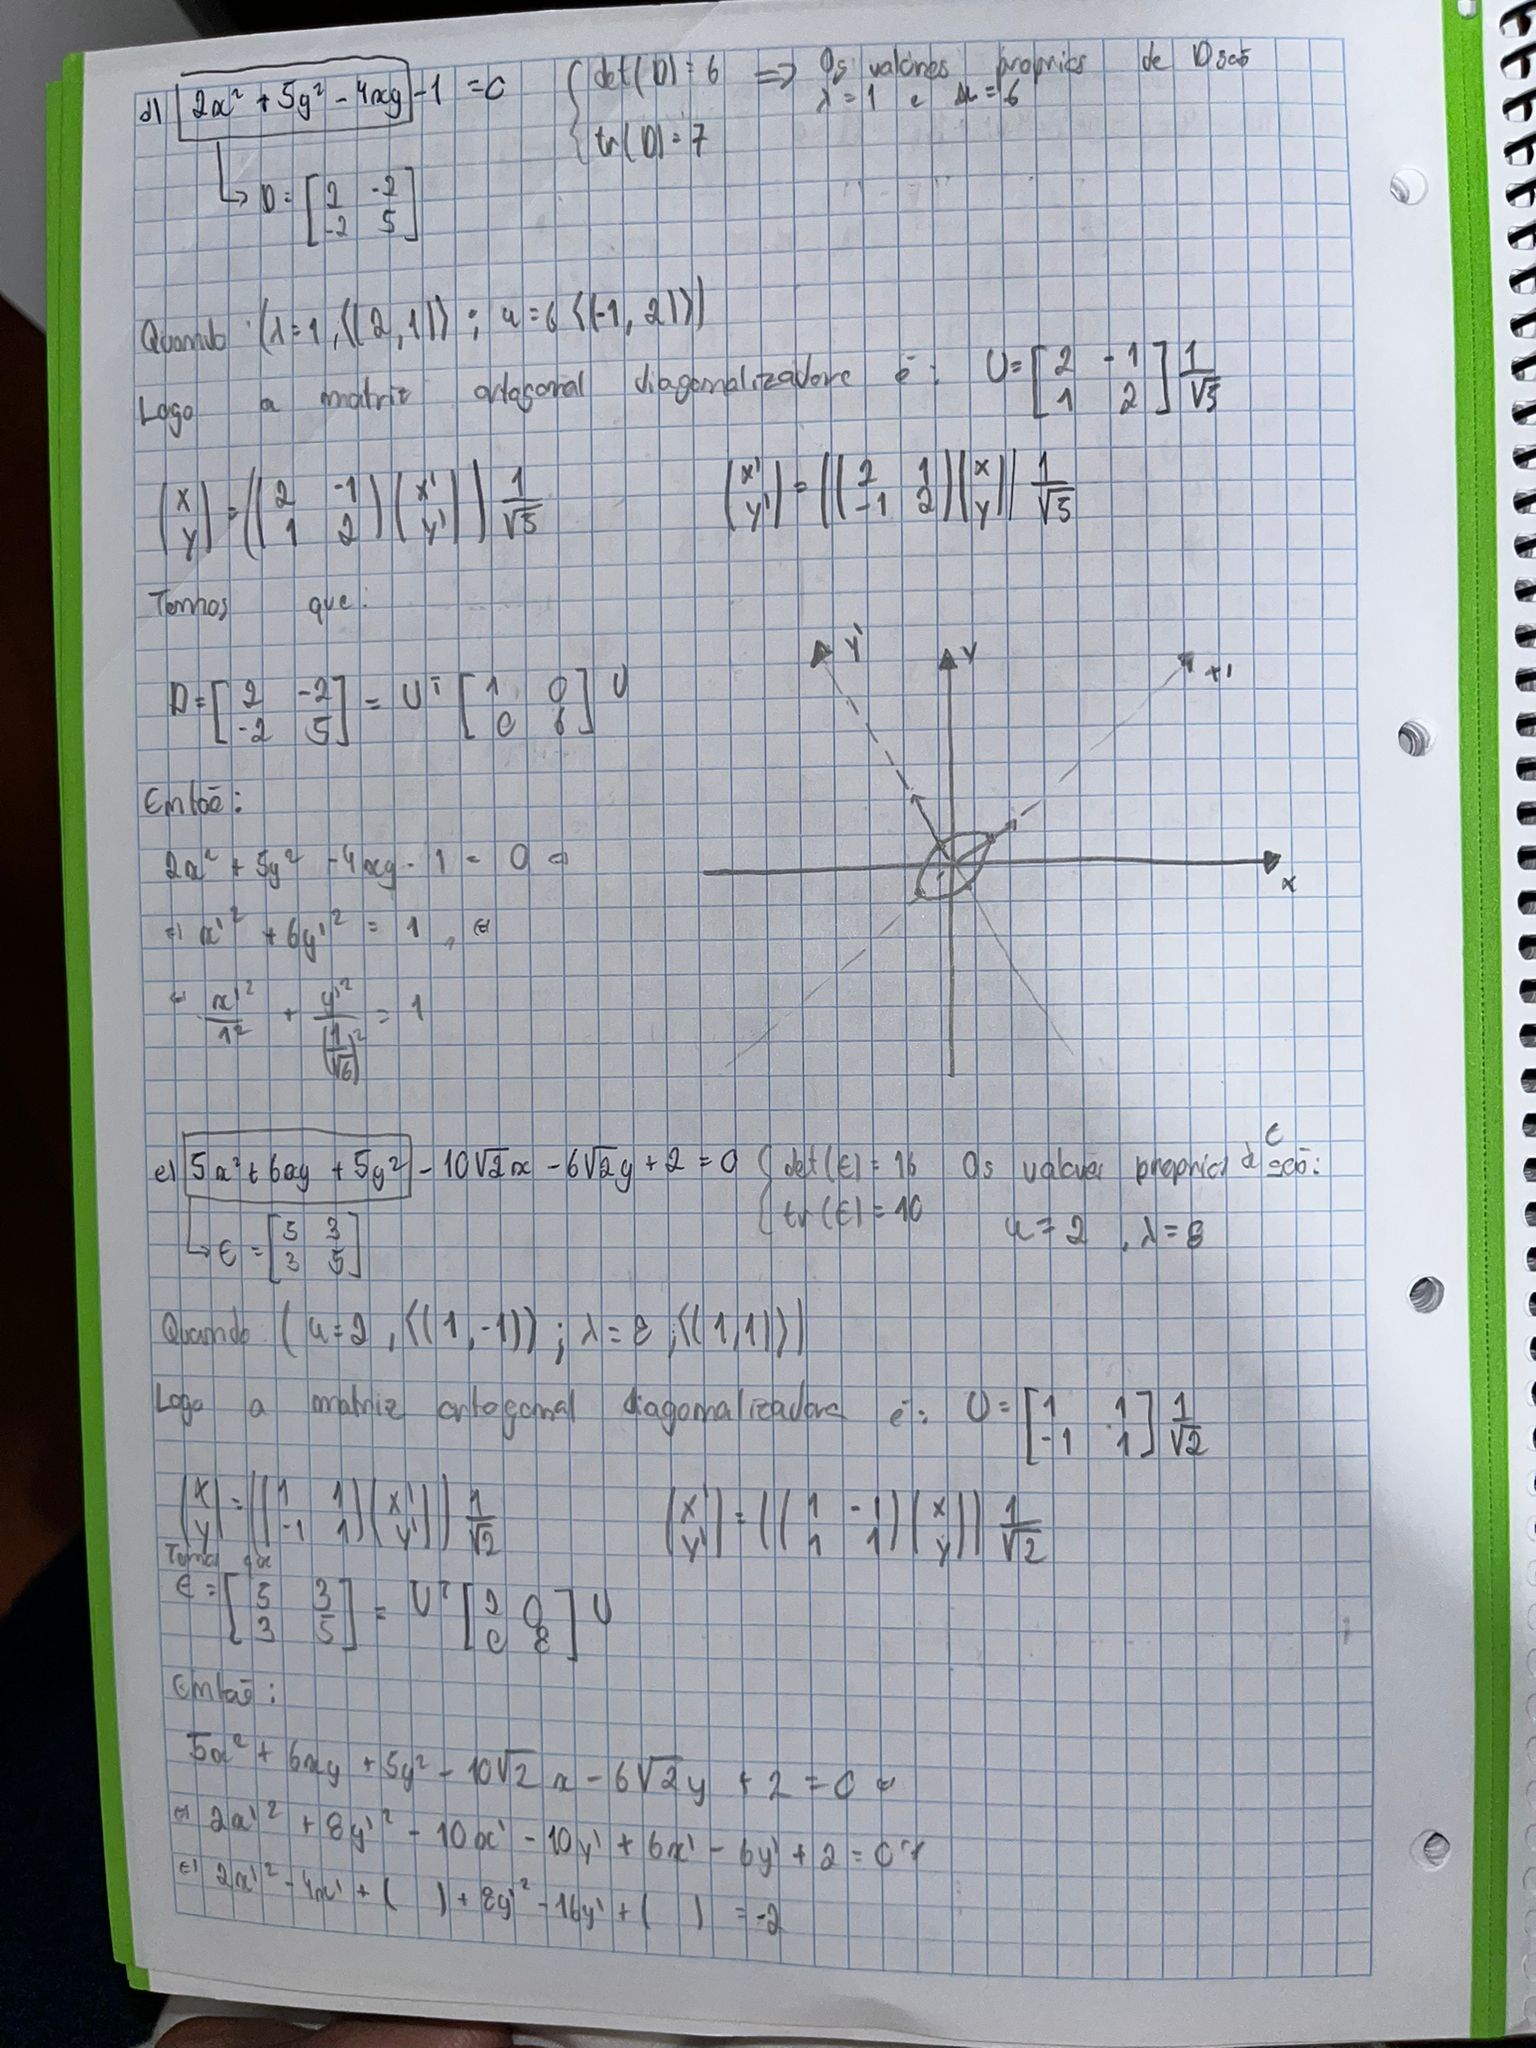 d) 2x² + 5y² - 4xy - 1 = 0 { det(D) = 6 => Os valores proprios de D são
tr(D) = 7 λ = 1 e u = 6
↳ D = [2 -2; -2 5]
Quando: (λ = 1, ⟨(2, 1)⟩ ; u = 6 ⟨(-1, 2)⟩)
Logo a matriz ortogonal diagonalizadora é: U = [2 -1; 1 2] 1/√5
(x; y) = ((2 -1; 1 2)(x'; y')) 1/√5 (x'; y') = ((2 1; -1 2)(x; y)) 1/√5
Temos que:
y' y x'
D = [2 -2; -2 5] = Uᵀ [1 0; 0 6] U
Então:
2x² + 5y² - 4xy - 1 = 0 ⇔
x
⇔ x'² + 6y'² = 1, ⇔
⇔ x'²/1² + y'²/(1/√6)² = 1
e) 5x² + 6xy + 5y² - 10√2x - 6√2y + 2 = 0 { det(E) = 16 Os valores proprios d E são:
tr(E) = 10 u = 2, λ = 8
↳ E = [5 3; 3 5]
Quando: (u = 2, ⟨(1, -1)⟩ ; λ = 8 ; ⟨(1, 1)⟩)
Logo a matriz ortogonal diagonalizadora é: U = [1 1; -1 1] 1/√2
(x; y) = ((1 1; -1 1)(x'; y')) 1/√2 (x'; y') = ((1 -1; 1 1)(x; y)) 1/√2
E = [5 3; 3 5] = Uᵀ [2 0; 0 8] U
Então:
5x² + 6xy + 5y² - 10√2 x - 6√2 y + 2 = 0 ⇔
⇔ 2x'² + 8y'² - 10x' - 10y' + 6x' - 6y' + 2 = 0 ⇔
⇔ 2x'² - 4x' + ( ) + 8y'² - 16y' + ( ) = -2